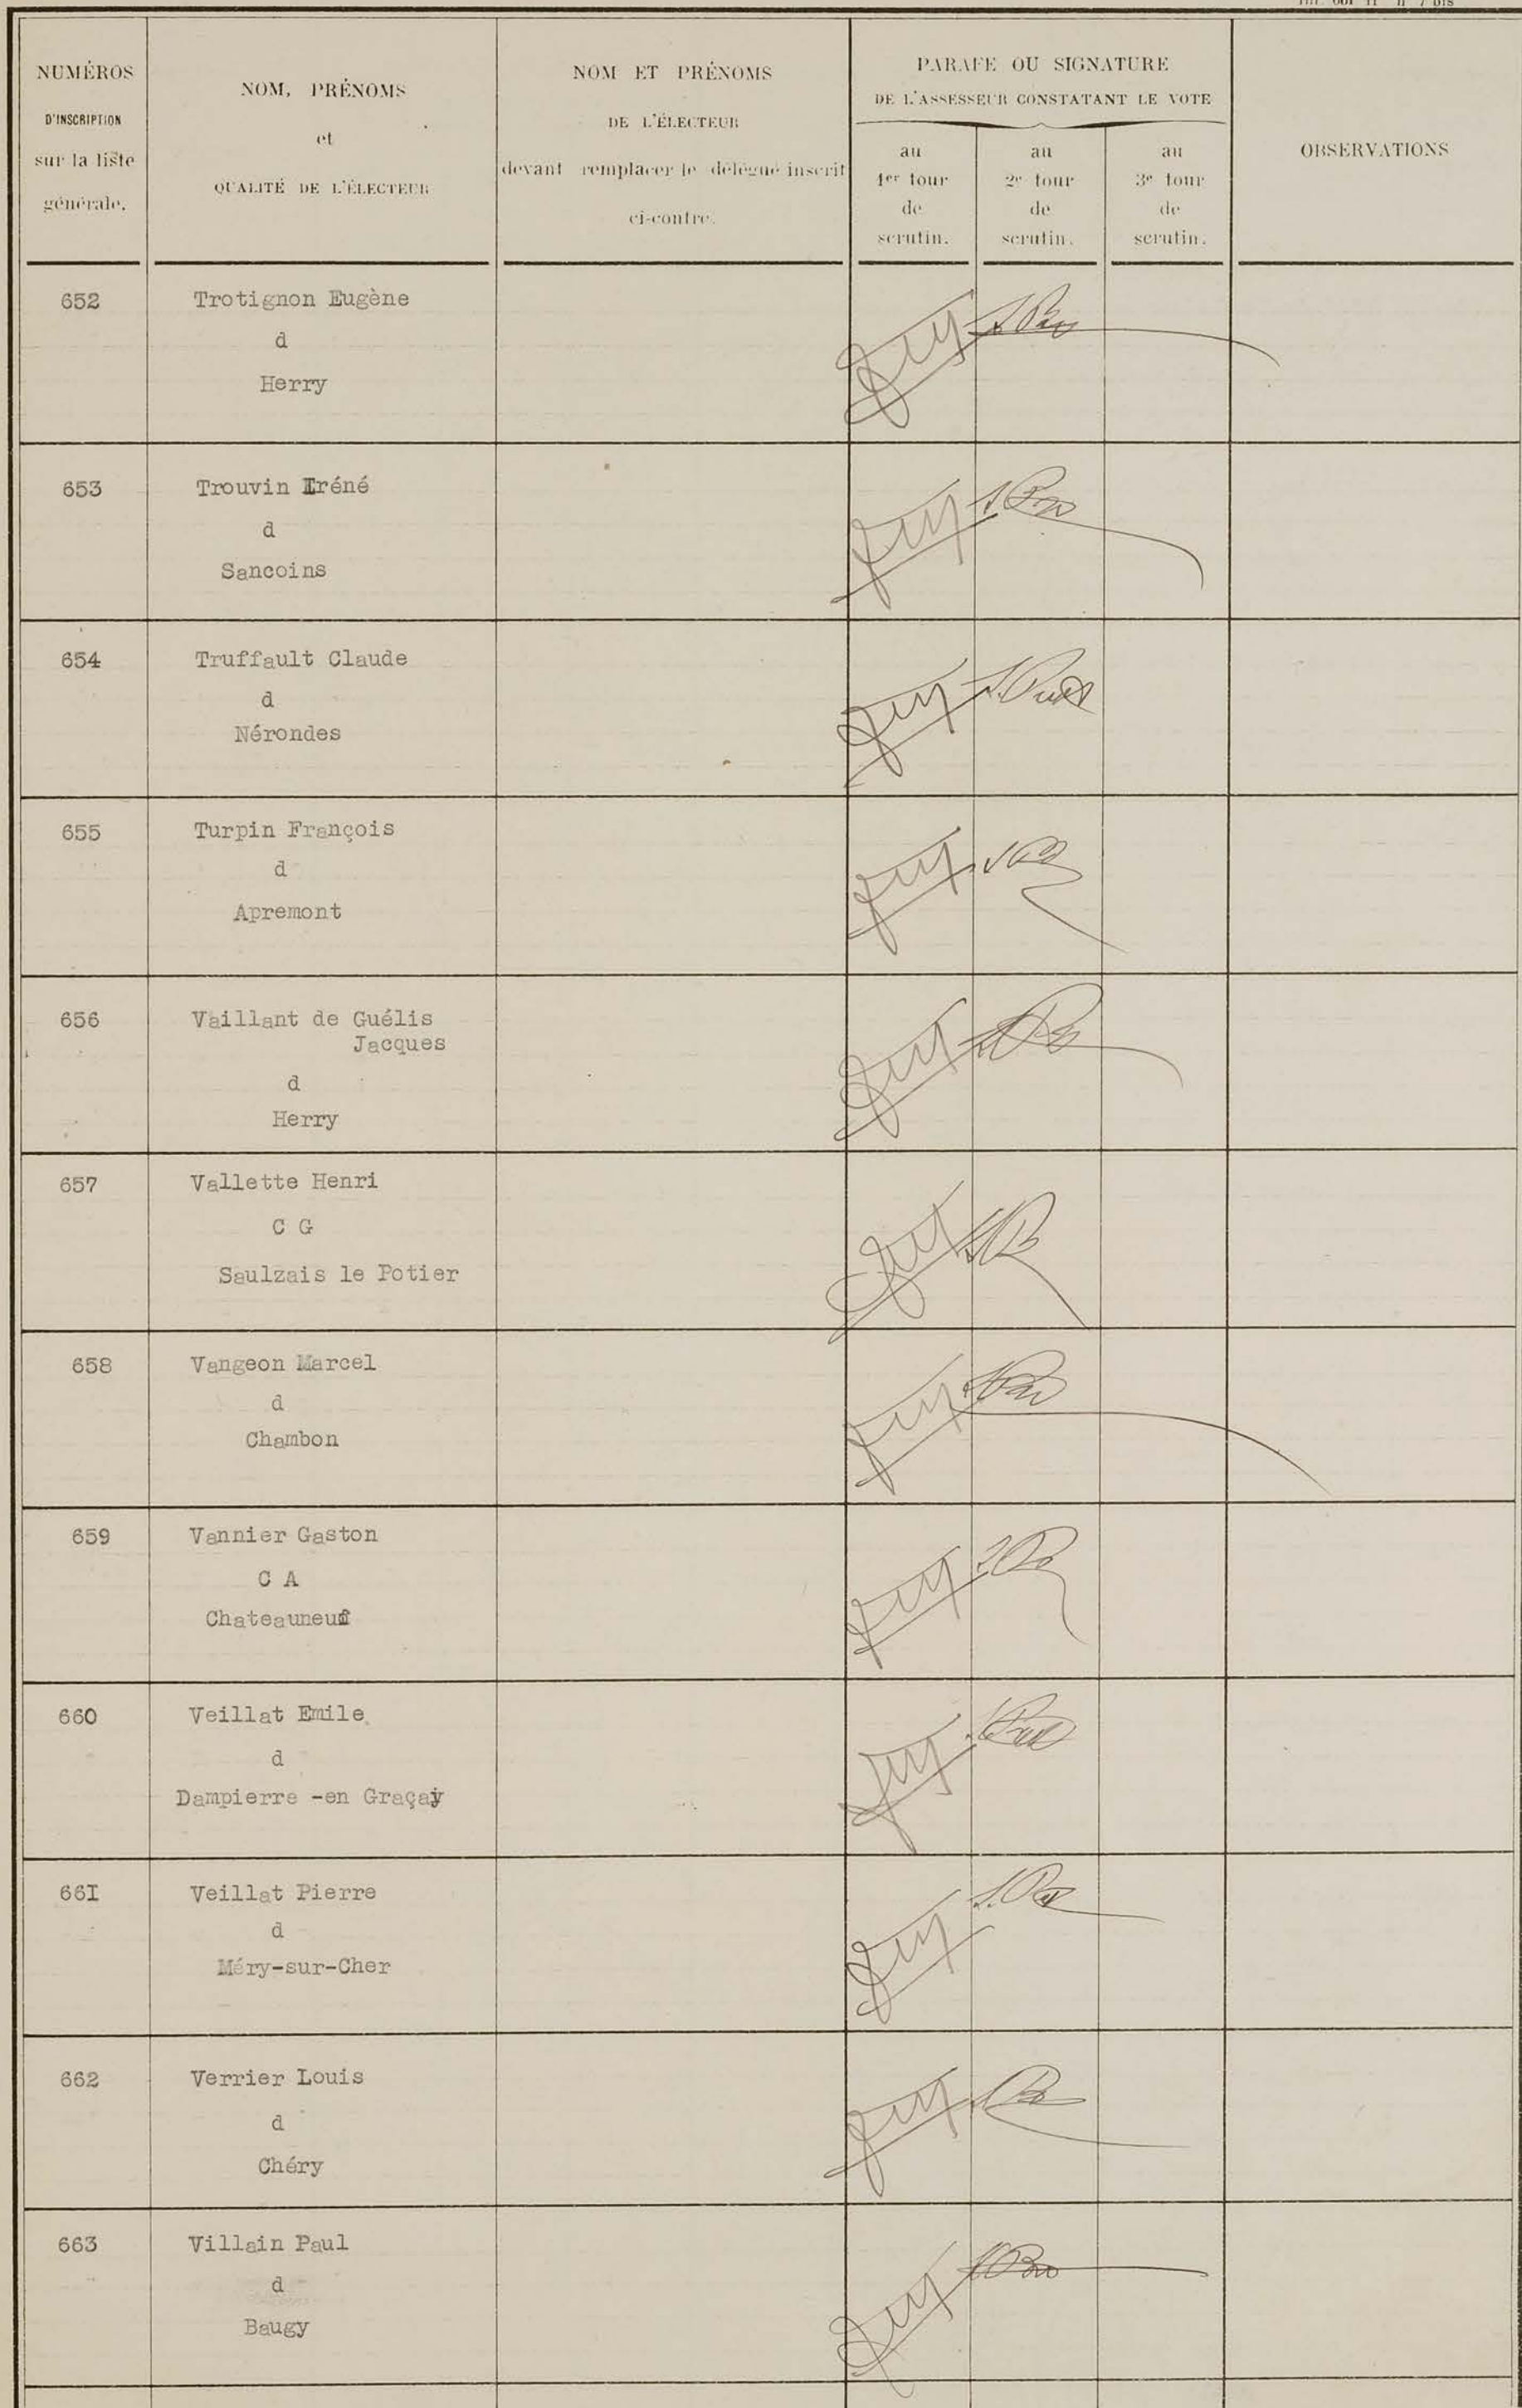 NUMÉROS
D'INSCRIPTION
sur la liste
générale.
NOM, PRÉNOMS
et
QUALITÉ DE L'ÉLECTEUR
NOM ET PRÉNOMS
DE L'ÉLECTEUR
devant remplacer le délégué inscrit
ci-contre.
PARAFE OU SIGNATURE
DE L'ASSESSEUR CONSTATANT LE VOTE
au
1er tour
de
scrutin.
au
2e tour
de
scrutin.
au
3e tour
de
scrutin.
OBSERVATIONS
652 Trotignon Eugène
d
Herry
653 Trouvin Iréné
d
Sancoins
654 Truffault Claude
d
Nérondes
655 Turpin François
d
Apremont
656 Vaillant de Guélis
Jacques
d
Herry
657 Vallette Henri
C G
Saulzais le Potier
658 Vangeon Marcel
d
Chambon
659 Vannier Gaston
C A
Chateauneuf
660 Veillat Emile
d
Dampierre -en Graçay
66I Veillat Pierre
d
Méry-sur-Cher
662 Verrier Louis
d
Chéry
663 Villain Paul
d
Baugy